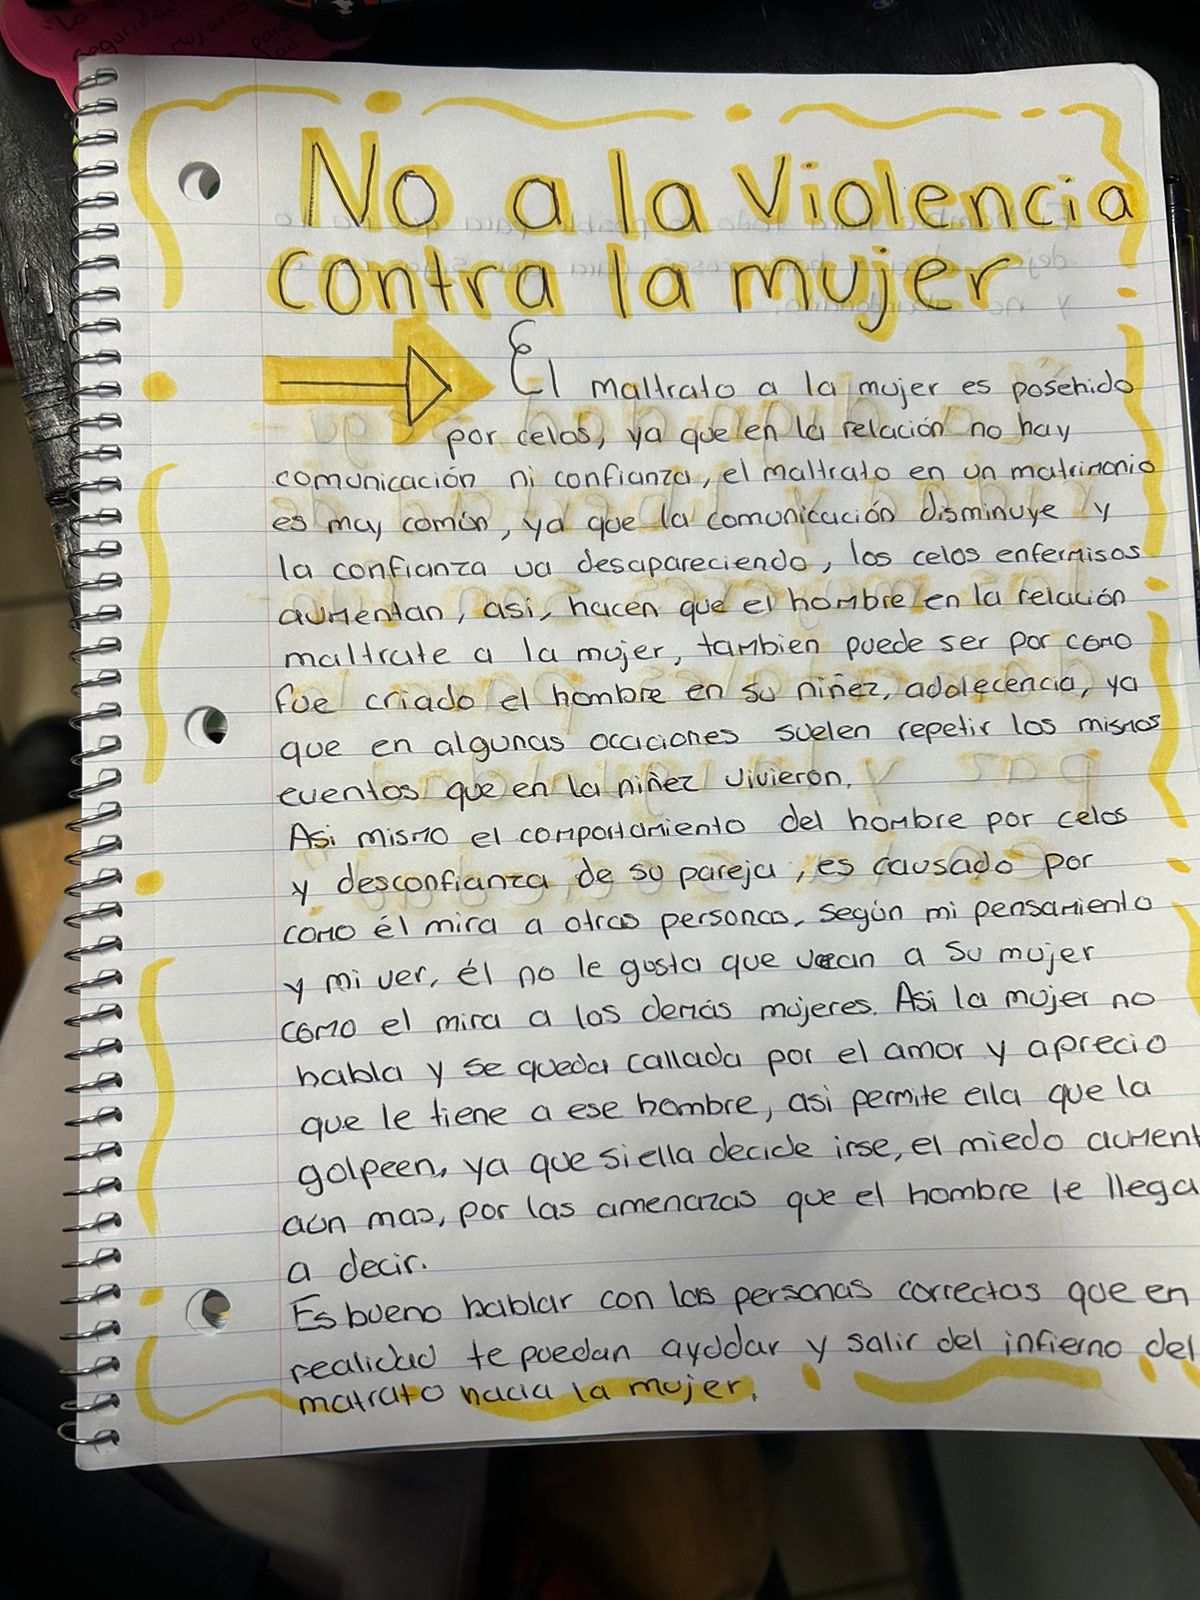 La
seguridad
mujeres
No a la Violencia
contra la mujer
El maltrato a la mujer es posehido
por celos, ya que en la relación no hay
comunicación ni confianza, el maltrato en un matrimonio
es muy común, ya que la comunicación disminuye y
la confianza va desapareciendo, los celos enfermisos
aumentan, asi, hacen que el hombre en la relación
maltrate a la mujer, tambien puede ser por como
fue criado el hombre en su niñez, adolecencia, ya
que en algunas occiciones suelen repetir los mismos
eventos que en la niñez vivieron.
Asi mismo el comportamiento del hombre por celos
y desconfianza de su pareja, es causado por
como él mira a otras personas, según mi pensamiento
y mi ver, él no le gusta que vean a su mujer
como el mira a las demás mujeres. Asi la mujer no
habla y se queda callada por el amor y aprecio
que le tiene a ese hombre, asi permite ella que la
golpeen, ya que si ella decide irse, el miedo aument
aún mas, por las amenazas que el hombre le llega
a decir.
Es bueno hablar con las personas correctas que en
realidad te puedan ayudar y salir del infierno del
matrato hacia la mujer.